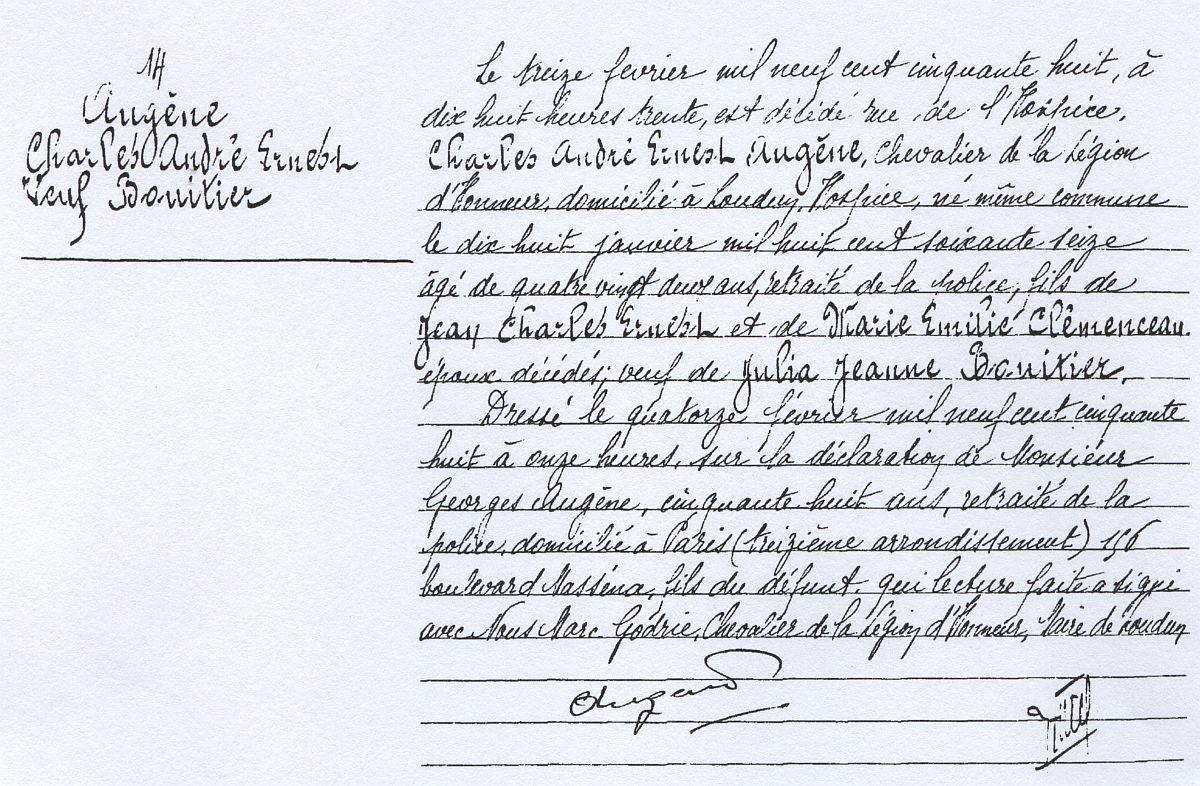 14
Augène
Charles André Ernest
Veuf Bonitier
Le treize février mil neuf cent cinquante huit, à
dix huit heures trente, est décédé rue de l'Hospice,
Charles André Ernest Augène, Chevalier de la Légion
d'Honneur, domicilié à Loudun, Hospice, né même commune
le dix huit janvier mil huit cent soixante seize
âgé de quatre vingt deux ans, retraité de la police, fils de
Jean Charles Ernest et de Marie Emilie Clémenceau.
époux décédés; veuf de Julia Jeanne Bonitier.
Dressé le quatorze février mil neuf cent cinquante
huit à onze heures, sur la déclaration de Monsieur
Georges Augène, cinquante huit ans, retraité de la
police, domicilié à Paris (treizième arrondissement) 156
boulevard Masséna, fils du défunt, qui lecture faite a signé
avec Nous Marc Godrie, Chevalier de la Légion d'Honneur, Maire de Loudun